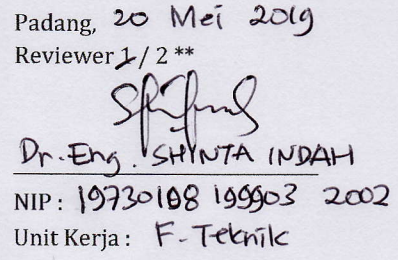 Padang, 20 Mei 2019
Reviewer 1 / 2 **
Dr. Eng. SHINTA INDAH
NIP : 19730108 199903 2002
Unit Kerja : F. Teknik